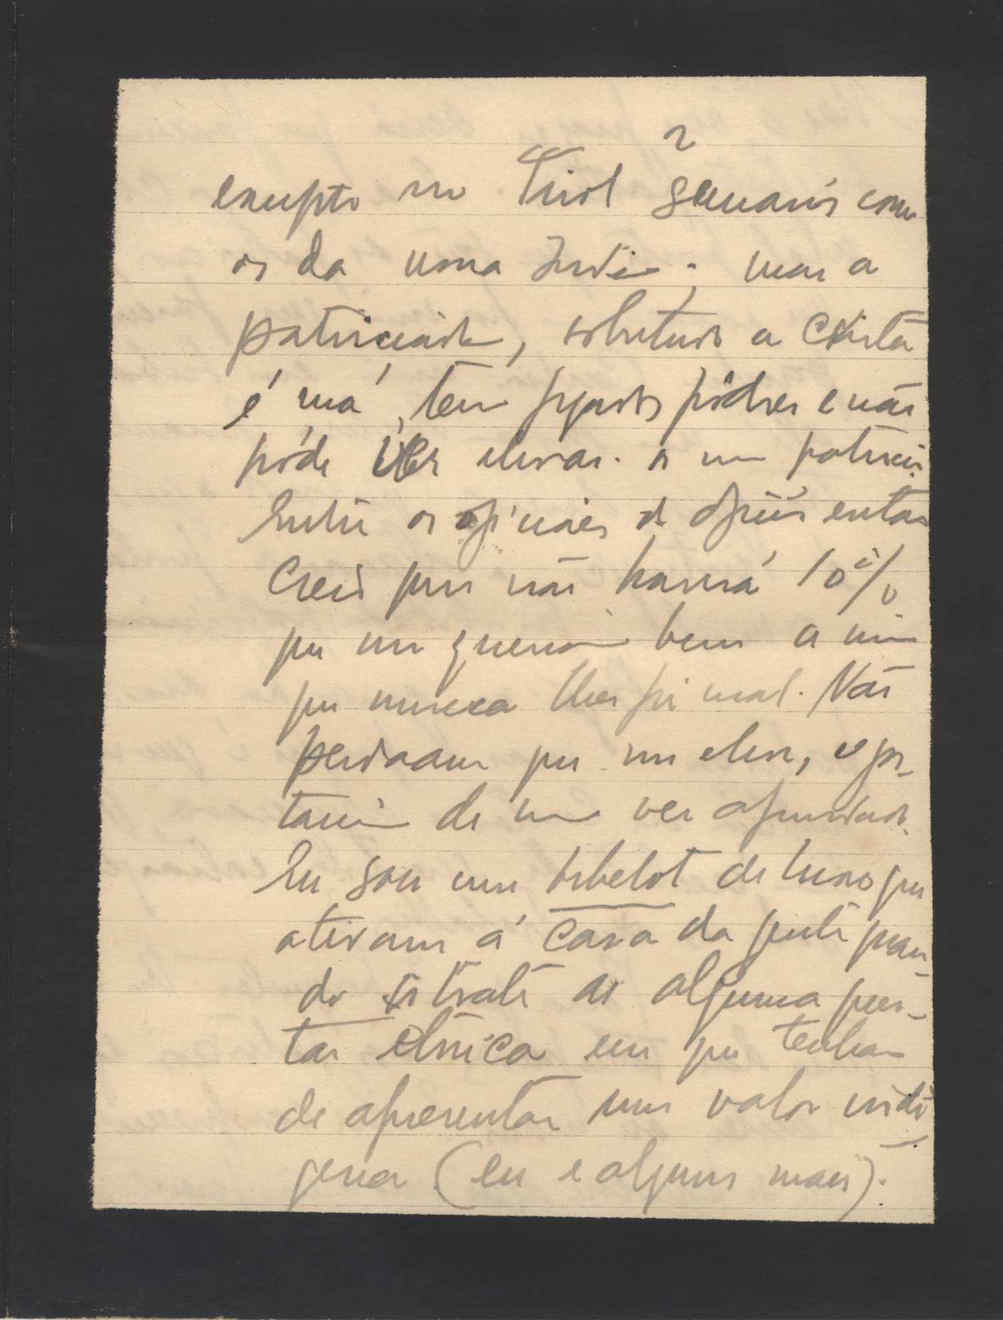 2
excepto no Tirol
os da nossa India; mas a
patriciada, sobretudo a cristã
é má, tem figados pôdres e não
póde ver elevar-se um patricio.
Entre os oficiais de oficio então
Creio que não haverá 10%
que me queiram bem a mim
que nunca lhes fiz mal. Não
perdoam que me eleve, e gos-
tariam de me ver afundado.
Eu sou um bibelot de luxo que
atiram á cara da gente quan-
do se trate de alguma ques-
tão etnica em que tenham
de apresentar um valor indi-
gena (eu e alguns mais).